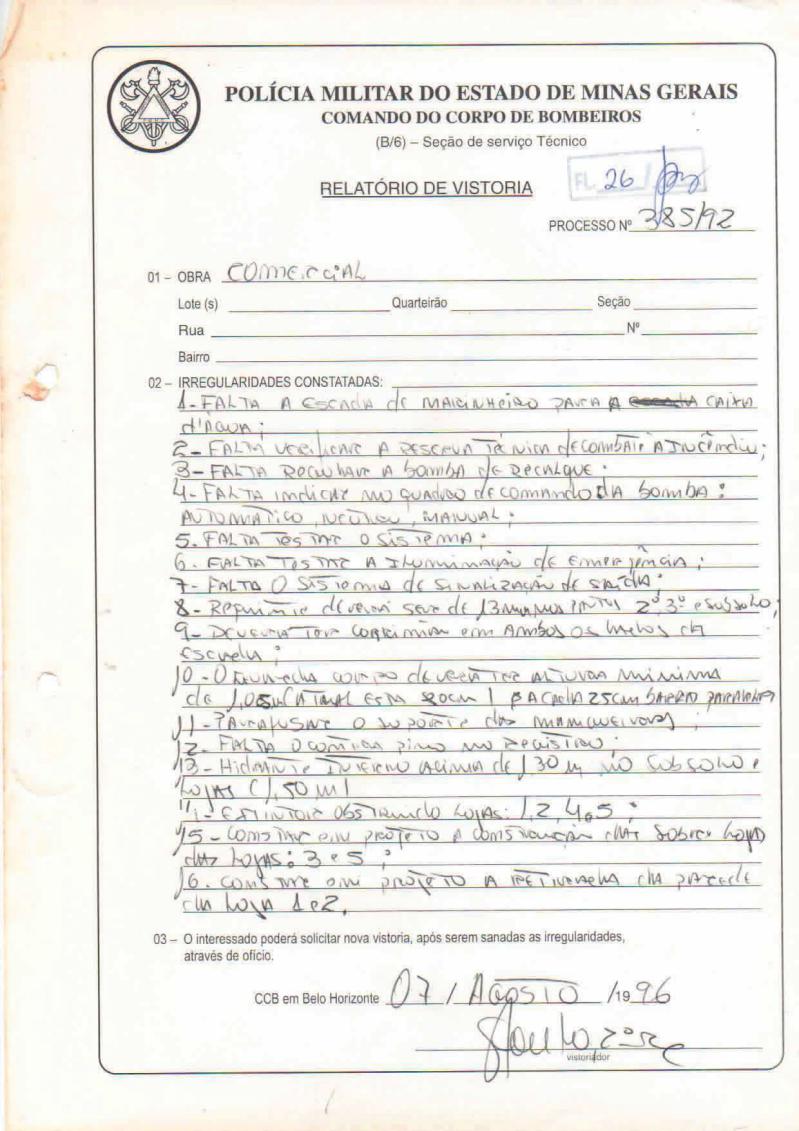 POLÍCIA MILITAR DO ESTADO DE MINAS GERAIS
COMANDO DO CORPO DE BOMBEIROS
(B/6) – Seção de serviço Técnico
RELATÓRIO DE VISTORIA
FL. 26
PROCESSO Nº 385/92
01 – OBRA COMERCIAL
Lote (s) Quarteirão Seção
Rua Nº
Bairro
02 – IRREGULARIDADES CONSTATADAS:
1- FALTA A ESCADA de MARINHEIRO PARA A CAIXA
d'ÁGUA;
2- FALTA VERIFICAR A RESERVA TÉCNICA de COMBATE A INCÊNDIO;
3- FALTA A bomba de RECALQUE;
4- FALTA indicar no quadro de comando DA bomba:
AUTOMÁTICO, NEUTRO, MANUAL;
5. FALTA TESTAR O SISTEMA;
6. FALTA TESTAR A ILUMINAÇÃO de EMERGÊNCIA;
7- FALTA O SISTEMA de SINALIZAÇÃO DE SAÍDA;
8- deverá ser de 13 2º 3º e subsolo;
9- DEVERÁ TER CORRIMÃO em AMBOS OS LADOS da
ESCADA;
10- O guarda corpo deverá TER ALTURA MÍNIMA
de 1,05m ATUAL ESTA 90cm 25cm
11- PARAFUSAR O SUPORTE das MANGUEIRAS;
12- FALTA O pino no REGISTRO;
13- HIDRANTE INTERNO ACIMA de 1,30 m no SUBSOLO e
LOJAS 1,50 m
14- EXTINTOR OBSTRUIDO LOJAS: 1, 2, 4, 5;
15- CONSTAR em PROJETO A CONSTRUÇÃO das SOBRE LOJAS
das LOJAS: 3 e 5;
16. CONSTAR em PROJETO A RETIRADA da parede
da LOJA 1 e 2.
03 – O interessado poderá solicitar nova vistoria, após serem sanadas as irregularidades,
através de ofício.
CCB em Belo Horizonte 07 / AGOSTO /1996
vistoriador